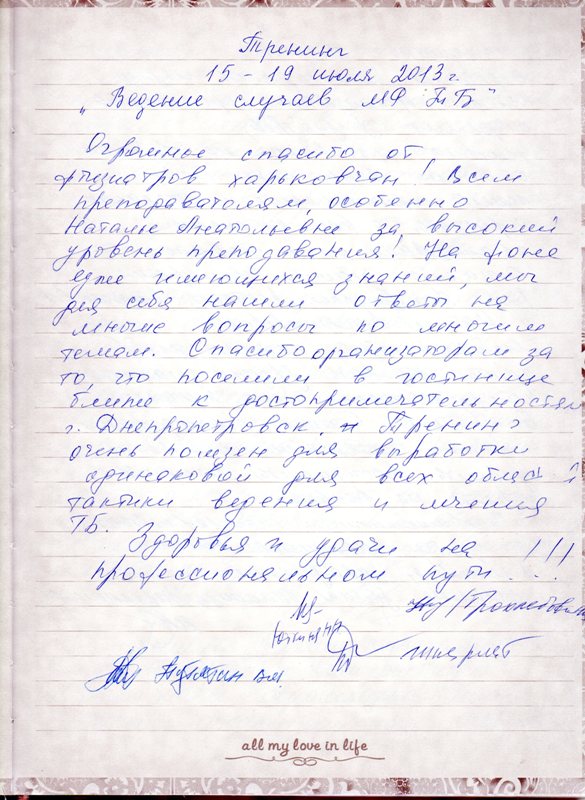 Тренинг
15 - 19 июля 2013 г.
„Ведение случаев МФ ТБ"
Огромное спасибо от
фтизиатров харьковчан! Всем
преподавателям, особенно
Наталье Анатольевне за высокий
уровень преподавания! На фоне
уже имеющихся знаний, мы
для себя нашли ответы на
многие вопросы по многим
темам. Спасибо организаторам за
то, что поселили в гостинице
ближе к достопримечательностям
г. Днепропетровск. Тренинг
очень полезен для выработки
одинаковой для всех областей
тактики ведения и лечения
ТБ.
Здоровья и удачи на !!!
профессиональном пути ...
all my love in life